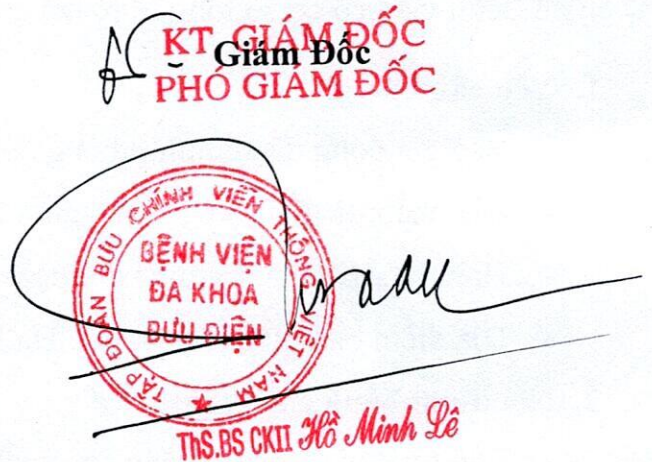 KT. GIÁM ĐỐC
Giám Đốc
PHÓ GIÁM ĐỐC
TẬP ĐOÀN BƯU CHÍNH VIỄN THÔNG VIỆT NAM
BỆNH VIỆN
ĐA KHOA
BƯU ĐIỆN
ThS.BS CKII Hồ Minh Lê